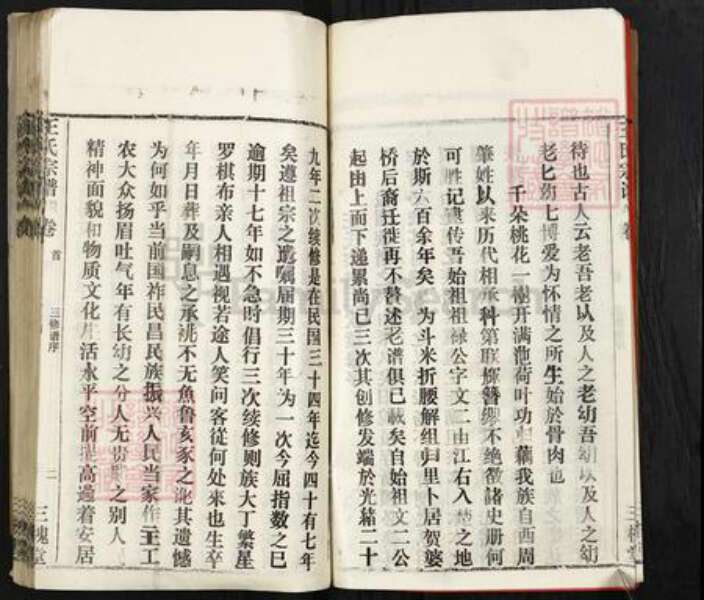 待也古人云老吾老以及人之老幼吾幼以及人之幼
老匕幼匕博爱为怀情之所生始于骨肉也
千朵桃花一樹开满池荷叶功归藕我族自西周
笔姓以来历代相承科第联辉簪缨不绝諸史册何
可胜记遗传吾始祖祖禄公字文二由江右入楚之地
於斯六百余年矣 为斗米折腰解组归里卜居贺婆
桥后裔迁徙再不赘述老谱俱已载矣自始祖文二公
起由上而下递累尚已三次其创修发端於光緒二十
九年二次续修是在民国三十四年迄今四十有七年
矣遵祖宗之遗嘱届期三十年为一次今屈指数之已
逾期十七年如不急时倡行三次续修则族大丁繁星
罗棋布亲人相遇视若途人笑问客從何处来也生卒
年月日葬及嗣息之承祧不无魚魯亥豕之訛其遗憾
为何如乎当前国祚民昌民族振兴人民当家作主工
农大众扬眉吐气年有长幼之分人无贵贱之别人
精神面貌和物质文化生活水平空前提高過着安居
王氏宗谱
卷
首
三修谱序
二
三槐堂